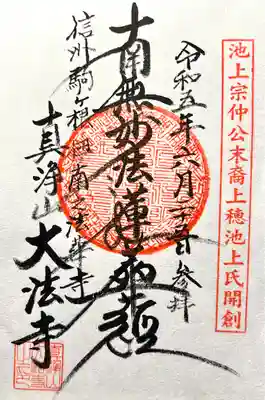 池上宗仲公末裔上穂池上氏開創
令和五年六月二十五日参拝
南無妙法蓮華経
信州駒ヶ根 南之法華寺
真浄山大法寺